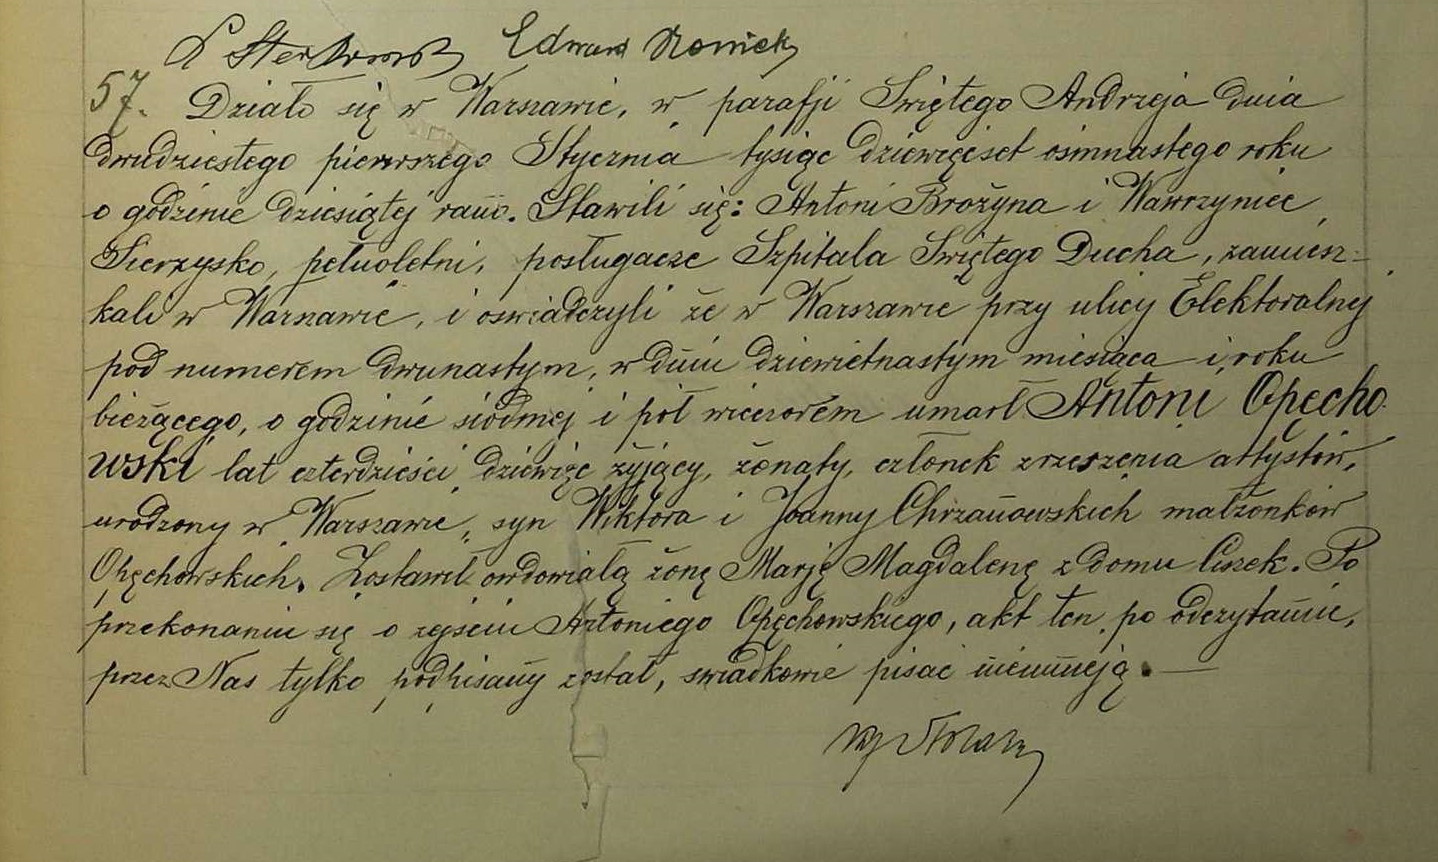 Edward
57. Działo się w Warszawie, w parafji Świętego Andrzeja dnia
dwudziestego pierwszego Stycznia tysiąc dziewięćset osimnastego roku
o godzinie dziesiątej rano. Stawili się: Antoni Brożyna i Wawrzyniec
Sierzysko, pełnoletni, posługacze Szpitala Świętego Ducha, zamiesz-
kali w Warszawie, i oswiadczyli że w Warszawie przy ulicy Elektoralnej
pod numerem dwunastym, w dniu dziewietnastym miesiąca i roku
bieżącego, o godzinie siódmej i pół wieczorem umarł Antoni Opęcho
wski lat czterdzieści dziewięć żyjący, żonaty, członek zrzeszenia artystów,
urodzony w Warszawie, syn Wiktora i Joanny Chrzanowskich małżonków
Opęchowskich. Zostawił owdowiałą żonę Marję Magdalenę z domu Ciszek. Po
przekonaniu się o zejściu Antoniego Opęchowskiego, akt ten po odczytaniu,
przez Nas tylko podpisany został, swiadkowie pisać nieumieją. —